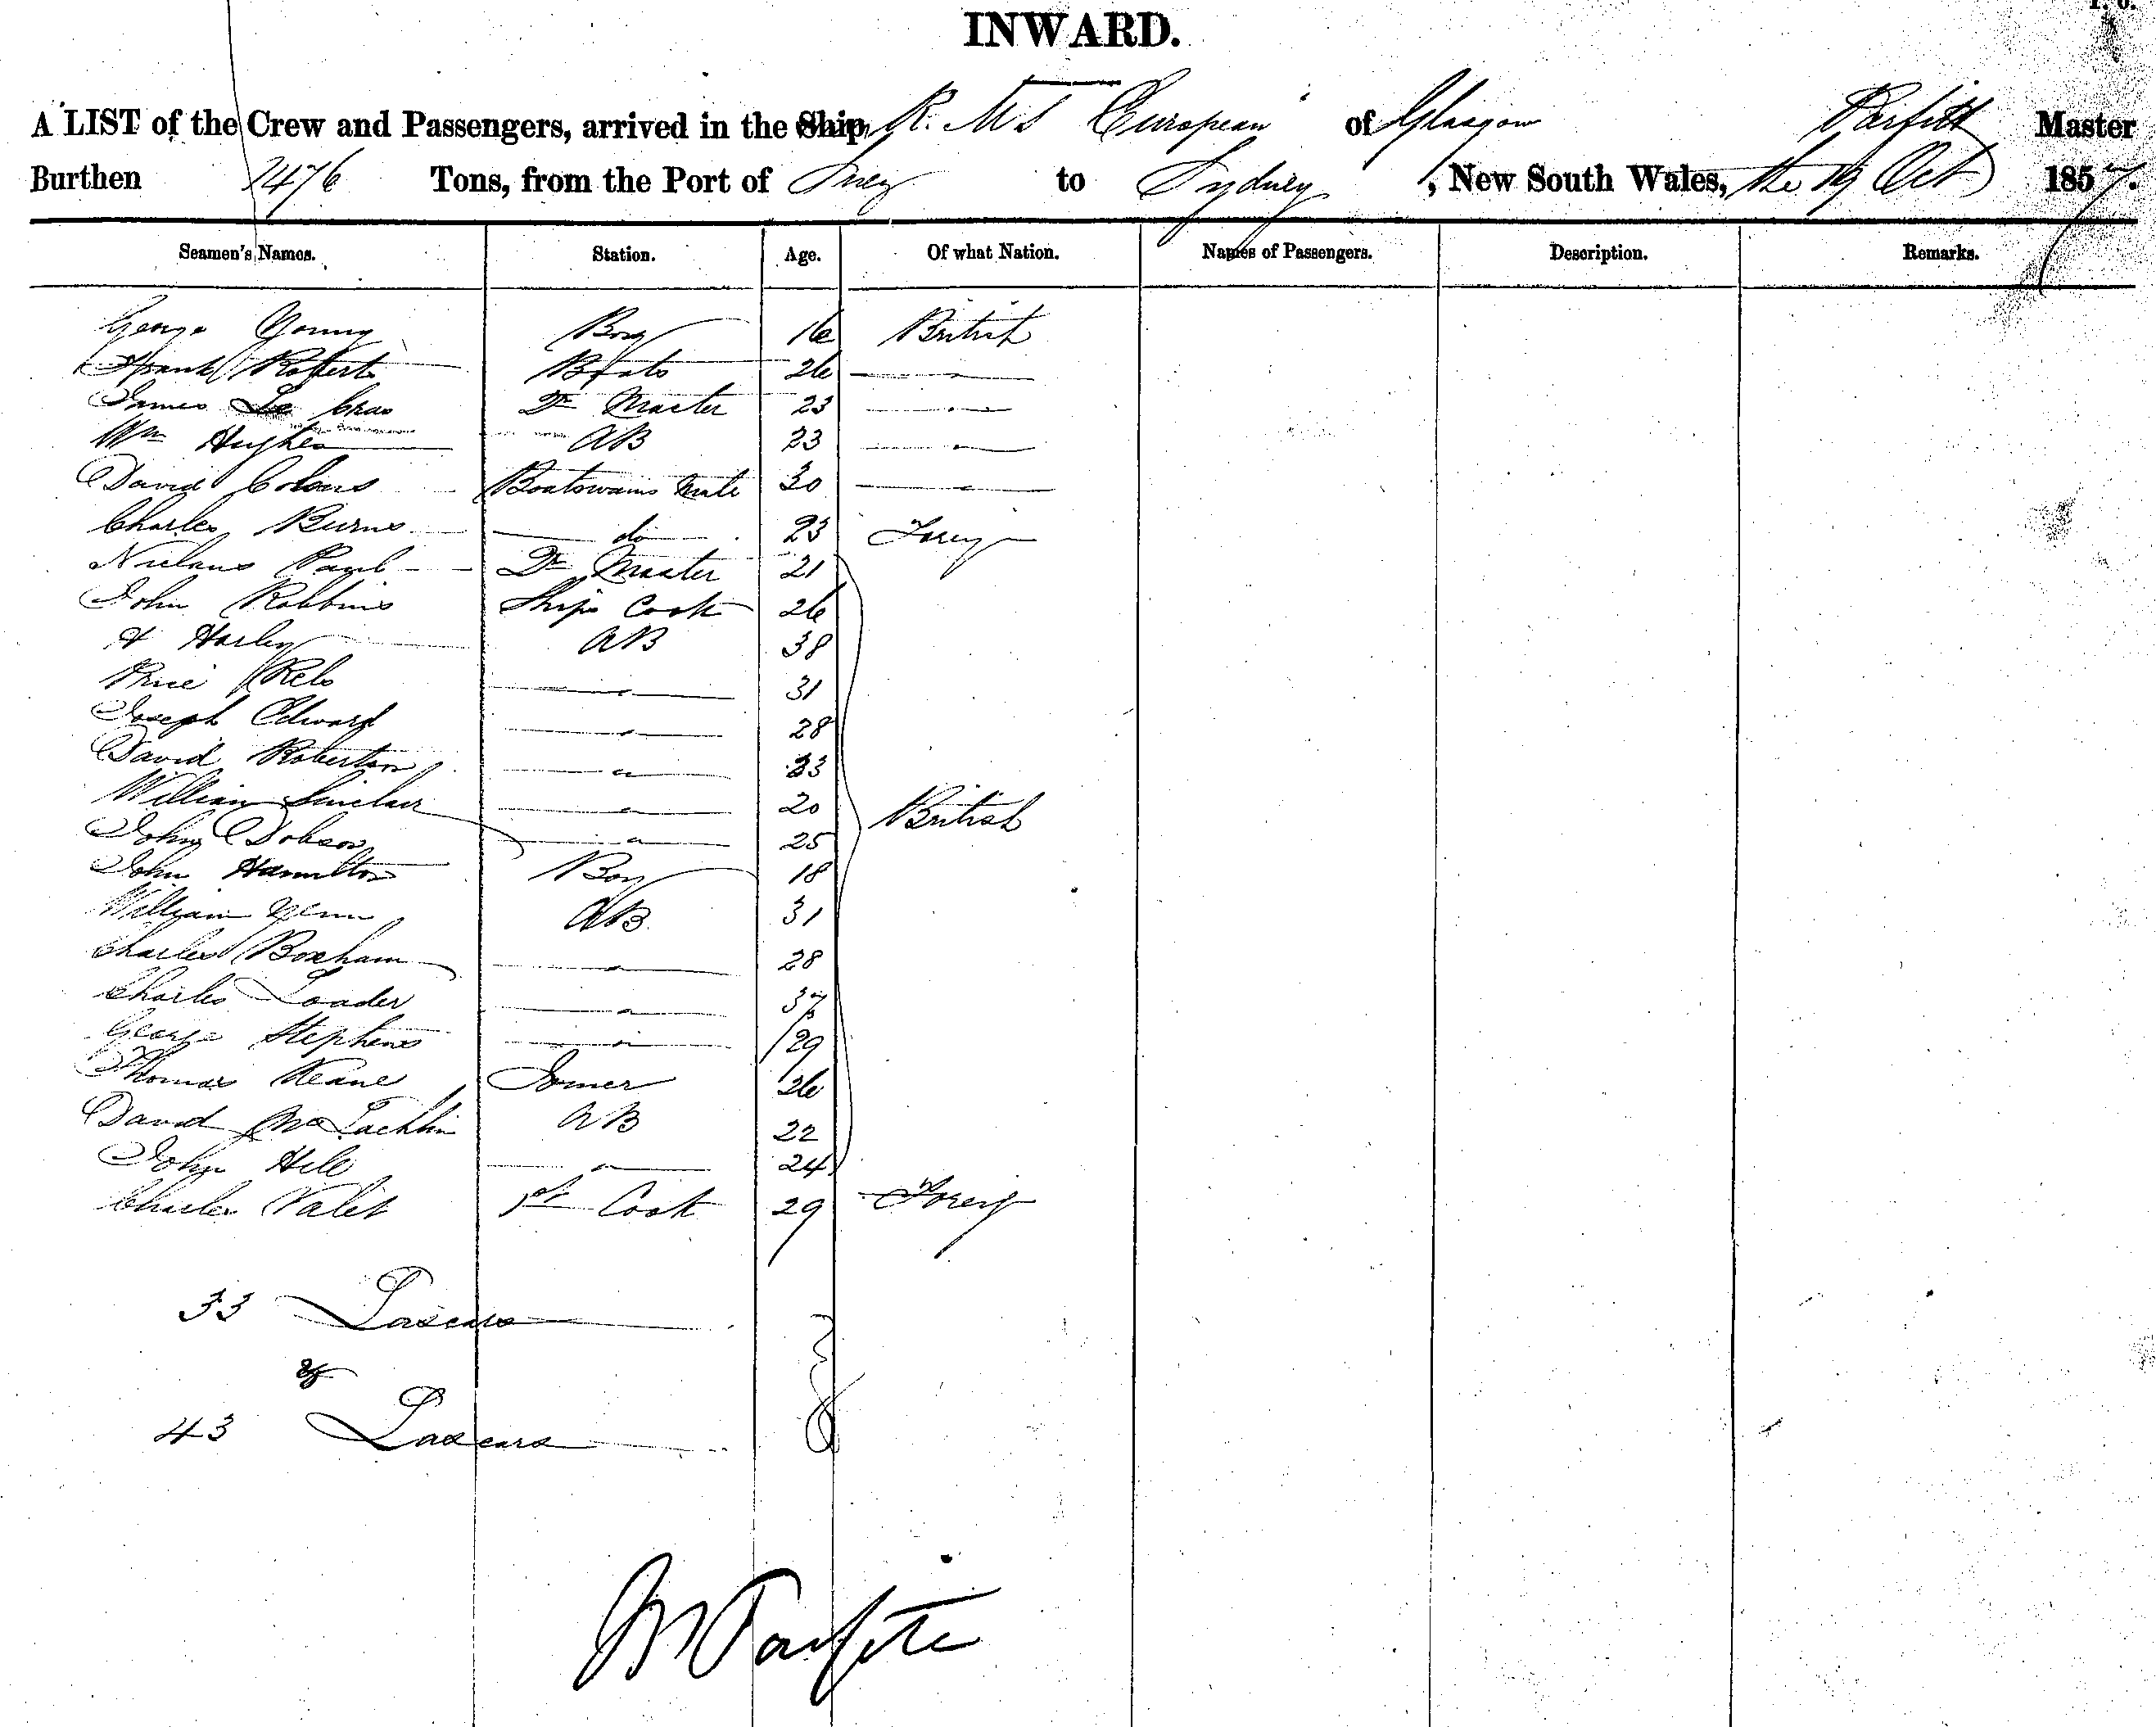 INWARD.
A LIST of the Crew and Passengers, arrived in the Ship R. M S European of Glasgow Parfitt Master
Burthen 1476 Tons, from the Port of Suez to Sydney, New South Wales, the 19 Oct 1857.
Seamen's Names. Station. Age. Of what Nation. Names of Passengers. Description. Remarks.
George Young Boy 16 British
Frank Roberts 26 "
James Le Cras Qr Master 23 "
Wm Hughes AB 23 "
David Boatswains Mate 30 "
Charles Burns do 23 Foreig
Paul Qr Master 21
John Robbins Ships Cook 26
H Harley AB 38
Price " 31
Joseph Edward " 28
David Robertson " 23
William Sinclair " 20 British
John Dobson " 25
John Hamilton Boy 18
William AB 31
Charles Boxham " 28
Charles Loader " 37
George Stephens " 29
Thomas Keane Joiner 26
David McLachlin AB 22
John Hill " 24
Charles Valet 1st Cook 29 Foreig
33 Lascars
&
43 Lascars
Parfitt